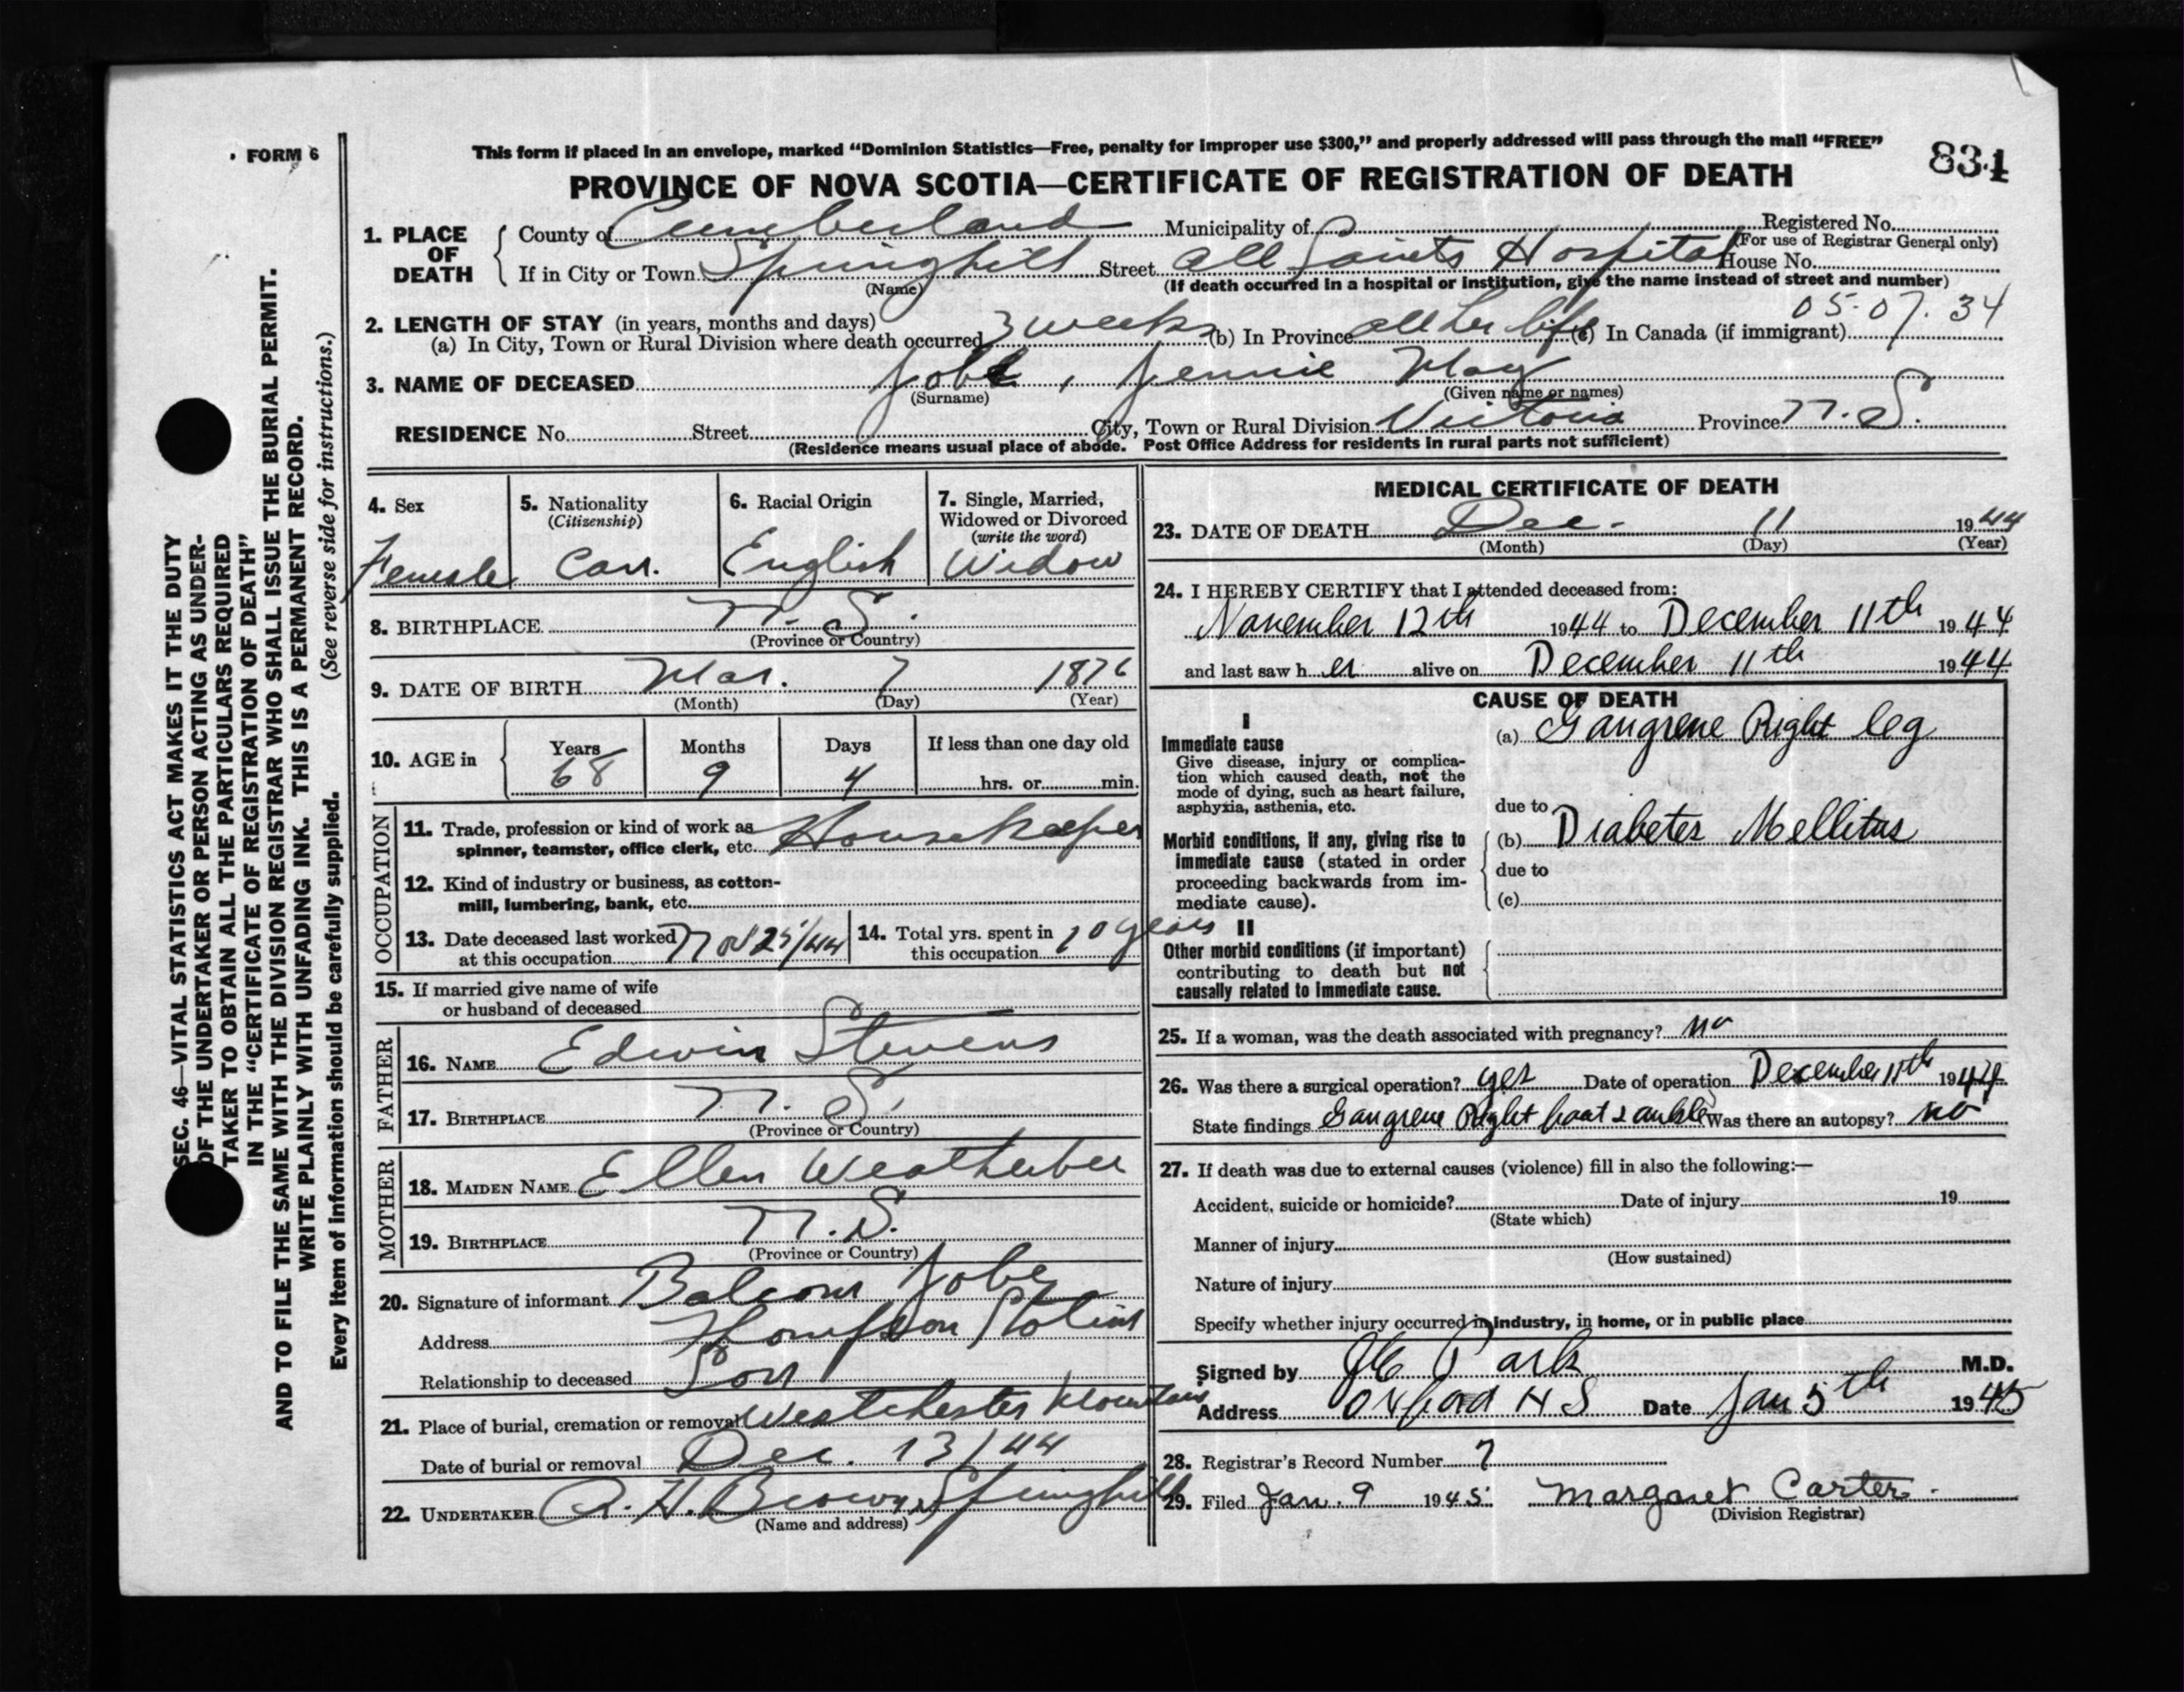 FORM 6
This form if placed in an envelope, marked "Dominion Statistics—Free, penalty for improper use $300," and properly addressed will pass through the mail "FREE"
834
PROVINCE OF NOVA SCOTIA—CERTIFICATE OF REGISTRATION OF DEATH
1. PLACE OF DEATH
County of Cumberland Municipality of Registered No.
(For use of Registrar General only)
If in City or Town Springhill Street All Saints Hospital House No.
(Name) (If death occurred in a hospital or institution, give the name instead of street and number)
05.07.34
2. LENGTH OF STAY (in years, months and days)
(a) In City, Town or Rural Division where death occurred 3 weeks (b) In Province all her life (c) In Canada (if immigrant)
3. NAME OF DECEASED Jobe, Jennie May
(Surname) (Given name or names)
RESIDENCE No. Street City, Town or Rural Division Victoria Province N.S.
(Residence means usual place of abode. Post Office Address for residents in rural parts not sufficient)
4. Sex Female
5. Nationality (Citizenship) Can.
6. Racial Origin English
7. Single, Married, Widowed or Divorced (write the word) Widow
8. BIRTHPLACE N.S.
(Province or Country)
9. DATE OF BIRTH Mar. 7 1876
(Month) (Day) (Year)
10. AGE in Years 68 Months 9 Days 4 If less than one day old
hrs. or min.
OCCUPATION
11. Trade, profession or kind of work as spinner, teamster, office clerk, etc. Housekeeper
12. Kind of industry or business, as cotton-mill, lumbering, bank, etc.
13. Date deceased last worked at this occupation Nov 25/44
14. Total yrs. spent in this occupation years
15. If married give name of wife
or husband of deceased
FATHER
16. NAME Edwin Stevens
17. BIRTHPLACE N.S.
(Province or Country)
MOTHER
18. MAIDEN NAME Ellen Weatherbee
19. BIRTHPLACE N.S.
(Province or Country)
20. Signature of informant Balcom Jobe
Address Thompson Station
Relationship to deceased Son
21. Place of burial, cremation or removal Westchester Mountain
Date of burial or removal Dec. 13/44
22. UNDERTAKER A. H. Brown, Springhill
(Name and address)
MEDICAL CERTIFICATE OF DEATH
23. DATE OF DEATH Dec. 11 1944
(Month) (Day) (Year)
24. I HEREBY CERTIFY that I attended deceased from:
November 12th 1944 to December 11th 1944
and last saw her alive on December 11th 1944
CAUSE OF DEATH
I
Immediate cause
Give disease, injury or complica-
tion which caused death, not the
mode of dying, such as heart failure,
asphyxia, asthenia, etc.
(a) Gangrene Right leg
due to
Morbid conditions, if any, giving rise to
immediate cause (stated in order
proceeding backwards from im-
mediate cause).
(b) Diabetes Mellitus
due to
(c)
II
Other morbid conditions (if important)
contributing to death but not
causally related to immediate cause.
25. If a woman, was the death associated with pregnancy? no
26. Was there a surgical operation? yes Date of operation December 11th 1944
State findings Gangrene Right foot & ankle Was there an autopsy? no
27. If death was due to external causes (violence) fill in also the following:—
Accident, suicide or homicide? Date of injury 19
(State which)
Manner of injury
(How sustained)
Nature of injury
Specify whether injury occurred in industry, in home, or in public place
Signed by Park M.D.
Address Oxford N S Date Jan 5th 1945
28. Registrar's Record Number 7
29. Filed Jan. 9 1945 Margaret Carter.
(Division Registrar)
SEC. 46—VITAL STATISTICS ACT MAKES IT THE DUTY
OF THE UNDERTAKER OR PERSON ACTING AS UNDER-
TAKER TO OBTAIN ALL THE PARTICULARS REQUIRED
IN THE "CERTIFICATE OF REGISTRATION OF DEATH"
AND TO FILE THE SAME WITH THE DIVISION REGISTRAR WHO SHALL ISSUE THE BURIAL PERMIT.
WRITE PLAINLY WITH UNFADING INK. THIS IS A PERMANENT RECORD.
Every item of information should be carefully supplied. (See reverse side for instructions.)